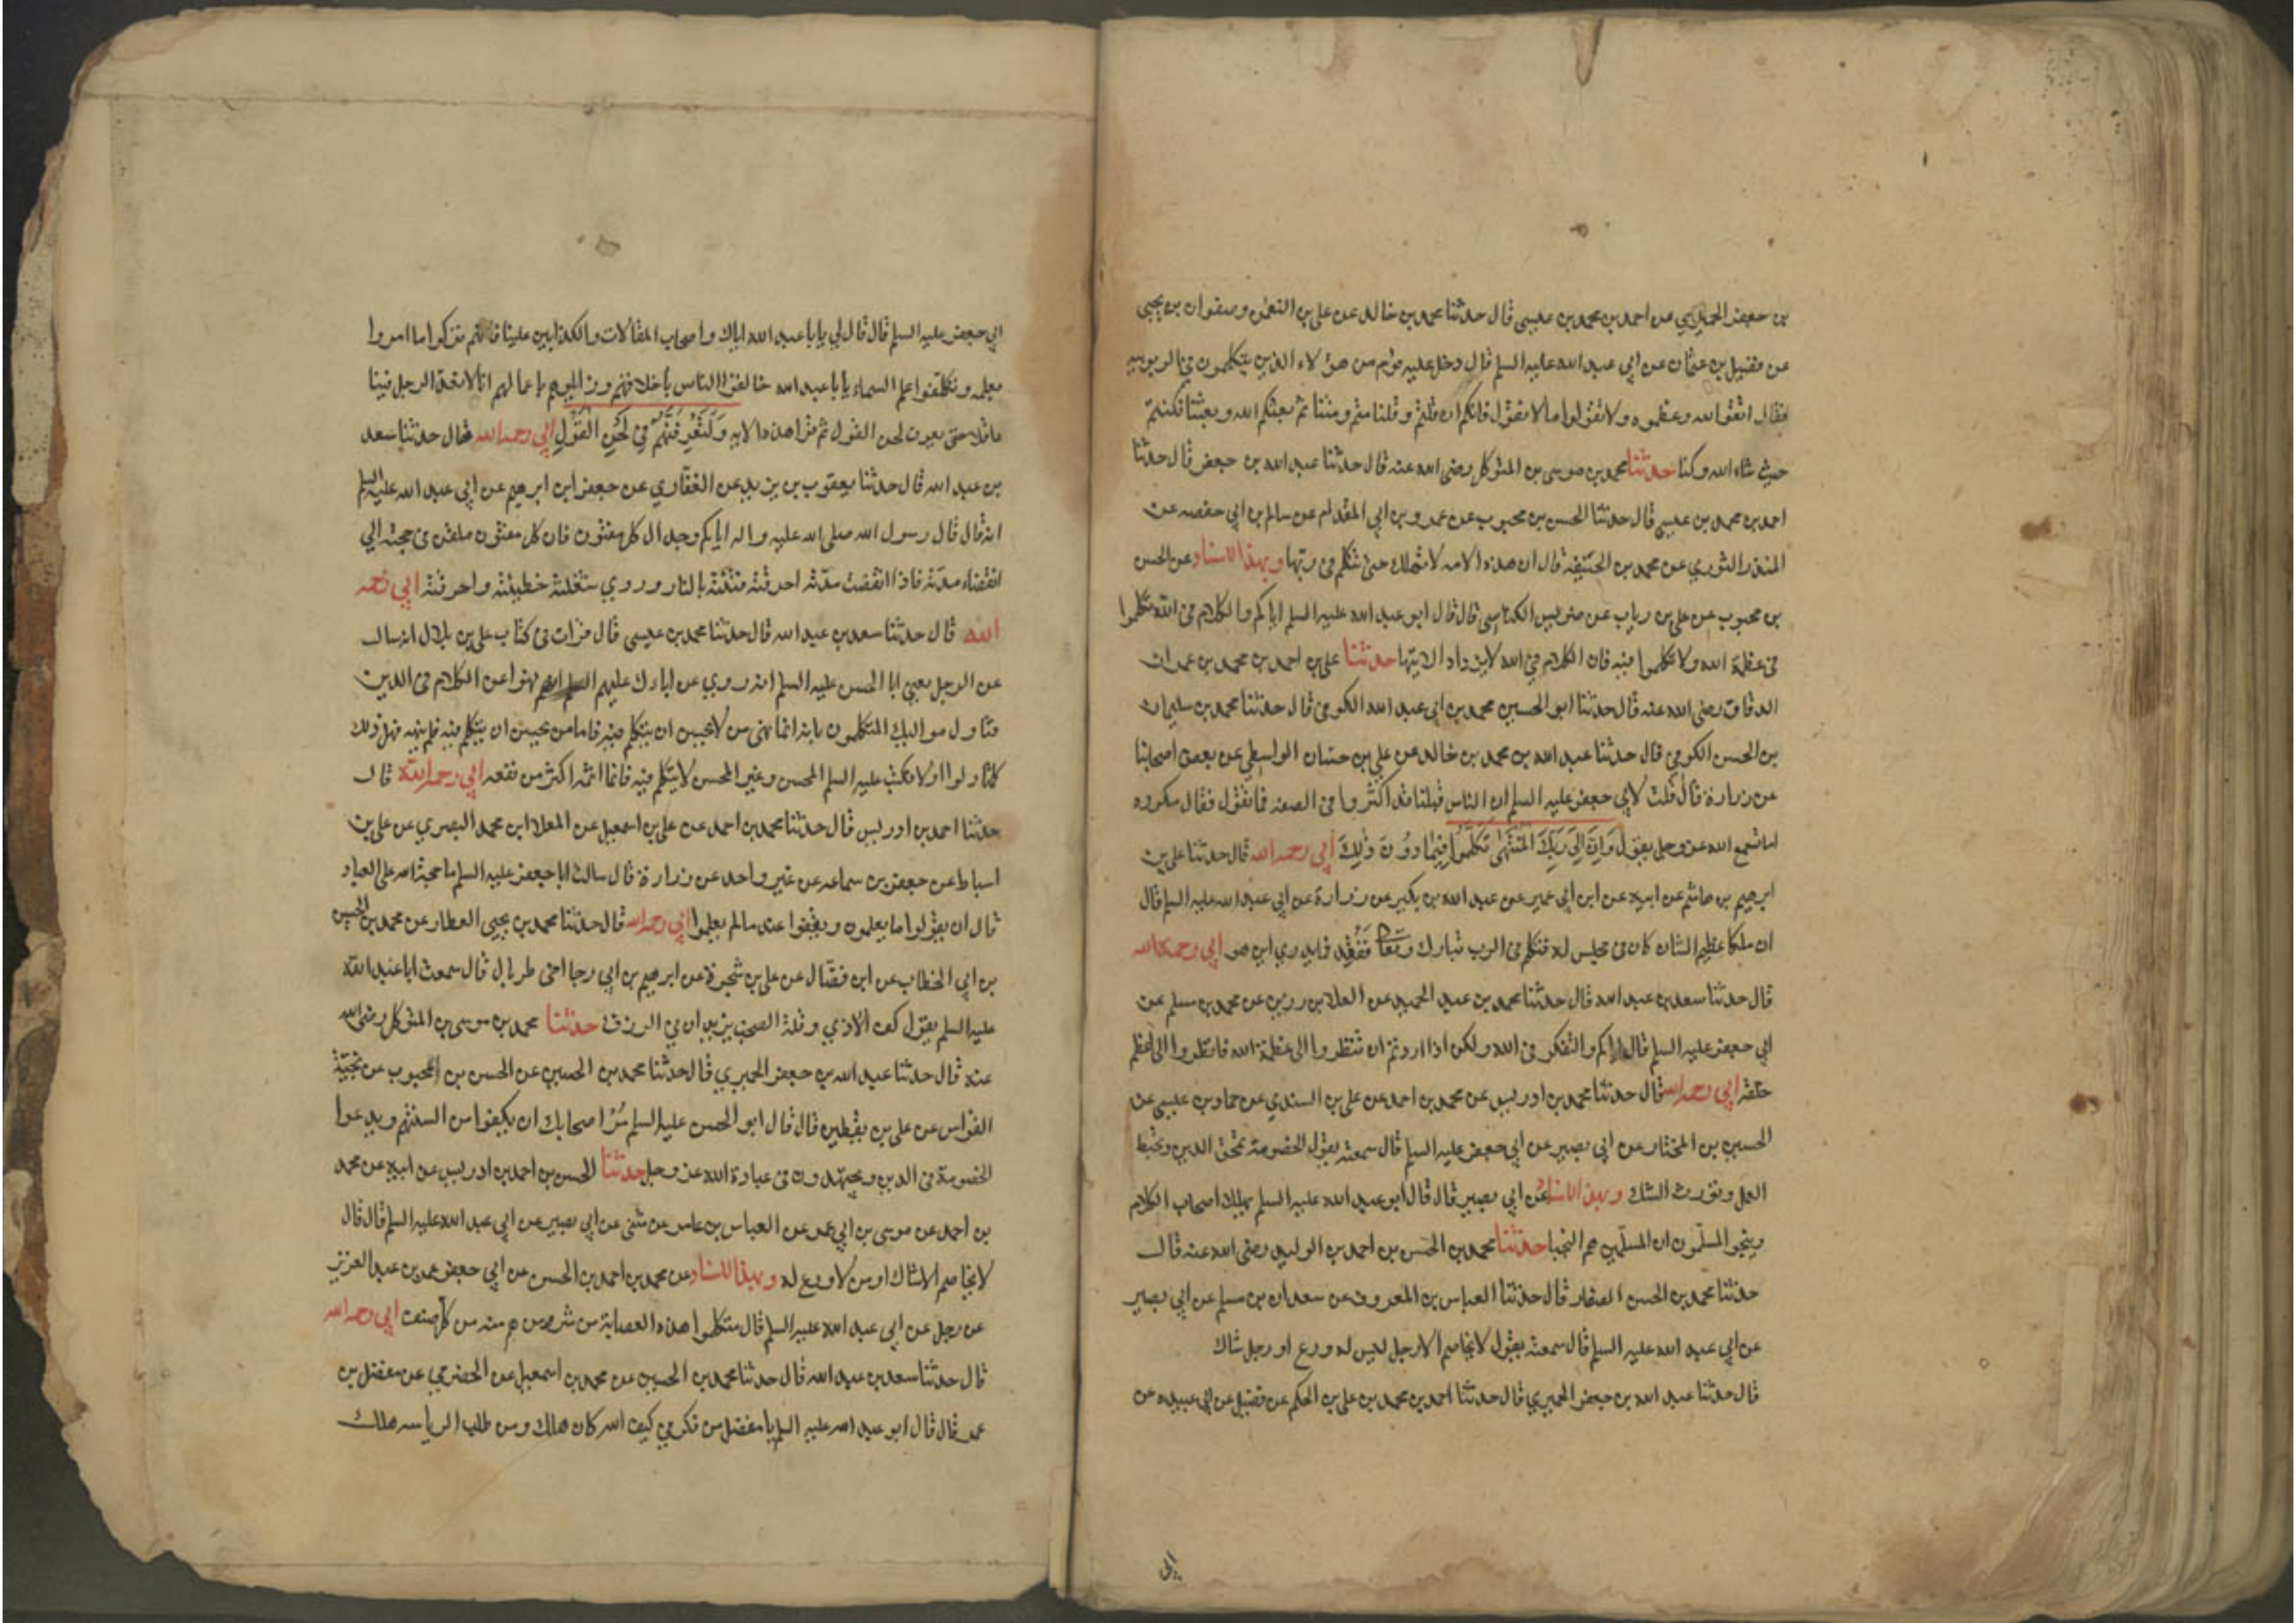 بن جعفر الحميري عن احمد بن محمد بن عيسى قال حدثنا محمد بن خالد عن علي بن النعمن وصفوان بن يحيى
عن فضيل بن عثمان عن ابي عبد الله عليه السلم قال دخل عليه قوم من هؤلاء الذين يتكلمون في الربوبيه
فقال اتقوا الله وعظموه ولا تقولوا ما لا نقول فانكم ان قلتم وقلنا متم ومتنا ثم بعثكم الله وبعثنا فكنتم
حيث شاء الله وكنا حدثنا محمد بن موسى بن المتوكل رضى الله عنه قال حدثنا عبد الله بن جعفر قال حدثنا
احمد بن محمد بن عيسى قال حدثنا الحسن بن محبوب عن عمرو بن ابي المقدام عن سالم بن ابي حفصه عن
المنذر الثوري عن محمد بن الحنيفة قال ان هذه الامه لا تهلك حتى تتكلم في ربها وبهذا الاسناد عن الحسن
بن محبوب عن علي بن رياب عن ضريس الكناسي قال قال ابو عبد الله عليه السلم اياكم والكلام في الله تكلموا
في عظمة الله ولا تكلموا فيه فان الكلام في الله لا يزداد الا تيها حدثنا علي بن احمد بن محمد بن عمران
الدقاق رضى الله عنه قال حدثنا ابو الحسين محمد بن ابي عبد الله الكوفي قال حدثنا محمد بن سليمان
بن الحسن الكوفي قال حدثنا عبد الله بن محمد بن خالد عن علي بن حسان الواسطي عن بعض اصحابنا
عن زرارة قال قلت لابي جعفر عليه السلم ان الناس قبلنا قد اكثروا في الصفه فما تقول فقال مكروه
اما تسمع الله عز وجل يقول وَاِنَّ اِلَى رَبِّكَ الْمُنْتَهَى تكلموا فيما دون ذلك ابي رحمه الله قال حدثنا علي بن
ابرهيم بن هاشم عن ابيه عن ابن ابي عمير عن عبد الله بن بكير عن زرارة عن ابي عبد الله عليه السلم قال
ان ملكا عظيم الشان كان في مجلس له فتكلم في الرب تبارك وتعا ففُقِد فما يدري اين هو ابي رحمه الله
قال حدثنا سعد بن عبد الله قال حدثنا محمد بن عبد الحميد عن العلا بن رزين عن محمد بن مسلم عن
ابي جعفر عليه السلم قال اياكم والتفكر في الله ولكن اذا اردتم ان تنظروا الى عظمة الله فانظروا الى عظم
خلقه ابي رحمه الله قال حدثنا محمد بن ادريس عن محمد بن احمد عن علي بن السندي عن حماد بن عيسى عن
الحسين بن المختار عن ابي بصير عن ابي جعفر عليه السلم قال سمعته يقول الخصومة تمحق الدين وتحبط
العمل وتورث الشك وبهذا الاسناد عن ابي بصير قال قال ابو عبد الله عليه السلم يهلك اصحاب الكلام
وينجو المسلّمون ان المسلّمين هم النجبا حدثنا محمد بن الحسن بن احمد بن الوليد رضى الله عنه قال
حدثنا محمد بن الحسن الصفار قال حدثنا العباس بن المعروف عن سعدان بن مسلم عن ابي بصير
عن ابي عبد الله عليه السلم قال سمعته يقول لا يخاصم الا رجل ليس له ورع او رجل شاك
قال حدثنا عبد الله بن جعفر الحميري قال حدثنا احمد بن محمد بن علي بن الحكم عن فضيل عن ابي عبيده عن
ابي جعفر عليه السلم قال قال لي يا با عبد الله اياك واصحاب المقالات والكذابين علينا فانهم تركوا ما امروا
بعلمه وتكلفوا علم السماء يا با عبد الله خالفوا الناس باخلاقهم وزايلوهم باعمالهم انا لا نعد الرجل فينا
عاقلا حتى يعرف لحن القول ثم قرا هذه الايه وَلَتَعْرِفَنَّهُمْ فِي لَحْنِ الْقَوْلِ ابي رحمه الله قال حدثنا سعد
بن عبد الله قال حدثنا يعقوب بن يزيد عن الغفاري عن جعفر ابن ابرهيم عن ابي عبد الله عليه السلم
انه قال قال رسول الله صلى الله عليه واله اياكم وجدال كل مفتون فان كل مفتون ملقن حجته الي
انقضاء مدّته فاذا انقضت مدّته احرقته فتنته بالنار وروي شغلته خطيئته واحرقته ابي رحمه
الله قال حدثنا سعد بن عبد الله قال حدثنا محمد بن عيسى قال قرات في كتاب علي بن بلال انه سال
عن الرجل يعني ابا الحسن عليه السلم انه روي عن اباءك عليهم السلم انهم نهوا عن الكلام في الدين
فتاول مواليك المتكلمون بانه انما نهى من لا يحسن ان يتكلم فيه فاما من يحسن ان يتكلم فيه فلم ينهه فهل ذلك
كما تاولوا او لا فكتب عليه السلم المحسن وغير المحسن لا يتكلم فيه فانما اثمه اكثر من نفعه ابي رحمه الله قال
حدثنا احمد بن ادريس قال حدثنا محمد بن احمد عن علي بن اسمعيل عن المعلا ابن محمد البصري عن علي بن
اسباط عن جعفر بن سماعه عن غير واحد عن زرارة قال سالت ابا جعفر عليه السلم ما حجة الله على العباد
قال ان يقولوا ما يعلمون ويقفوا عند ما لم يعلموا ابي رحمه الله قال حدثنا محمد بن يحيى العطار عن محمد بن الحسين
بن ابي الخطاب عن ابن فضال عن علي بن شجرة عن ابرهيم بن ابي رجا اخي طربال قال سمعت ابا عبد الله
عليه السلم يقول كف الاذي وقلة الصخب يزيدان في الرزق حدثنا محمد بن موسى بن المتوكل رضى الله
عنه قال حدثنا عبد الله بن جعفر الحميري قال حدثنا محمد بن الحسين عن الحسن بن المحبوب عن نجيّة
القواس عن علي بن يقطين قال قال ابو الحسن عليه السلم مُرْ اصحابك ان يكفوا من السنتهم ويدعوا
الخصومة في الدين ويجتهدون في عبادة الله عز وجل حدثنا الحسن بن احمد بن ادريس عن ابيه عن محمد
بن احمد عن موسى بن ابي عمر عن العباس بن عامر عن مثنى عن ابي بصير عن ابي عبد الله عليه السلم قال قال
لا يخاصم الا شاك او من لا ورع له وبهذا الاسناد عن محمد بن احمد بن الحسن عن ابي حفص عمر بن عبد العزيز
عن رجل عن ابي عبد الله عليه السلم قال متكلموا هذه العصابة من شر من هم منه من كل صنف ابي رحمه الله
قال حدثنا سعد بن عبد الله قال حدثنا محمد بن الحسين عن محمد بن اسمعيل عن الحضرمي عن مفضل بن
عمر قال قال ابو عبد الله عليه السلم يا مفضل من فكر في كيف الله كان هلك ومن طلب الرياسه هلك